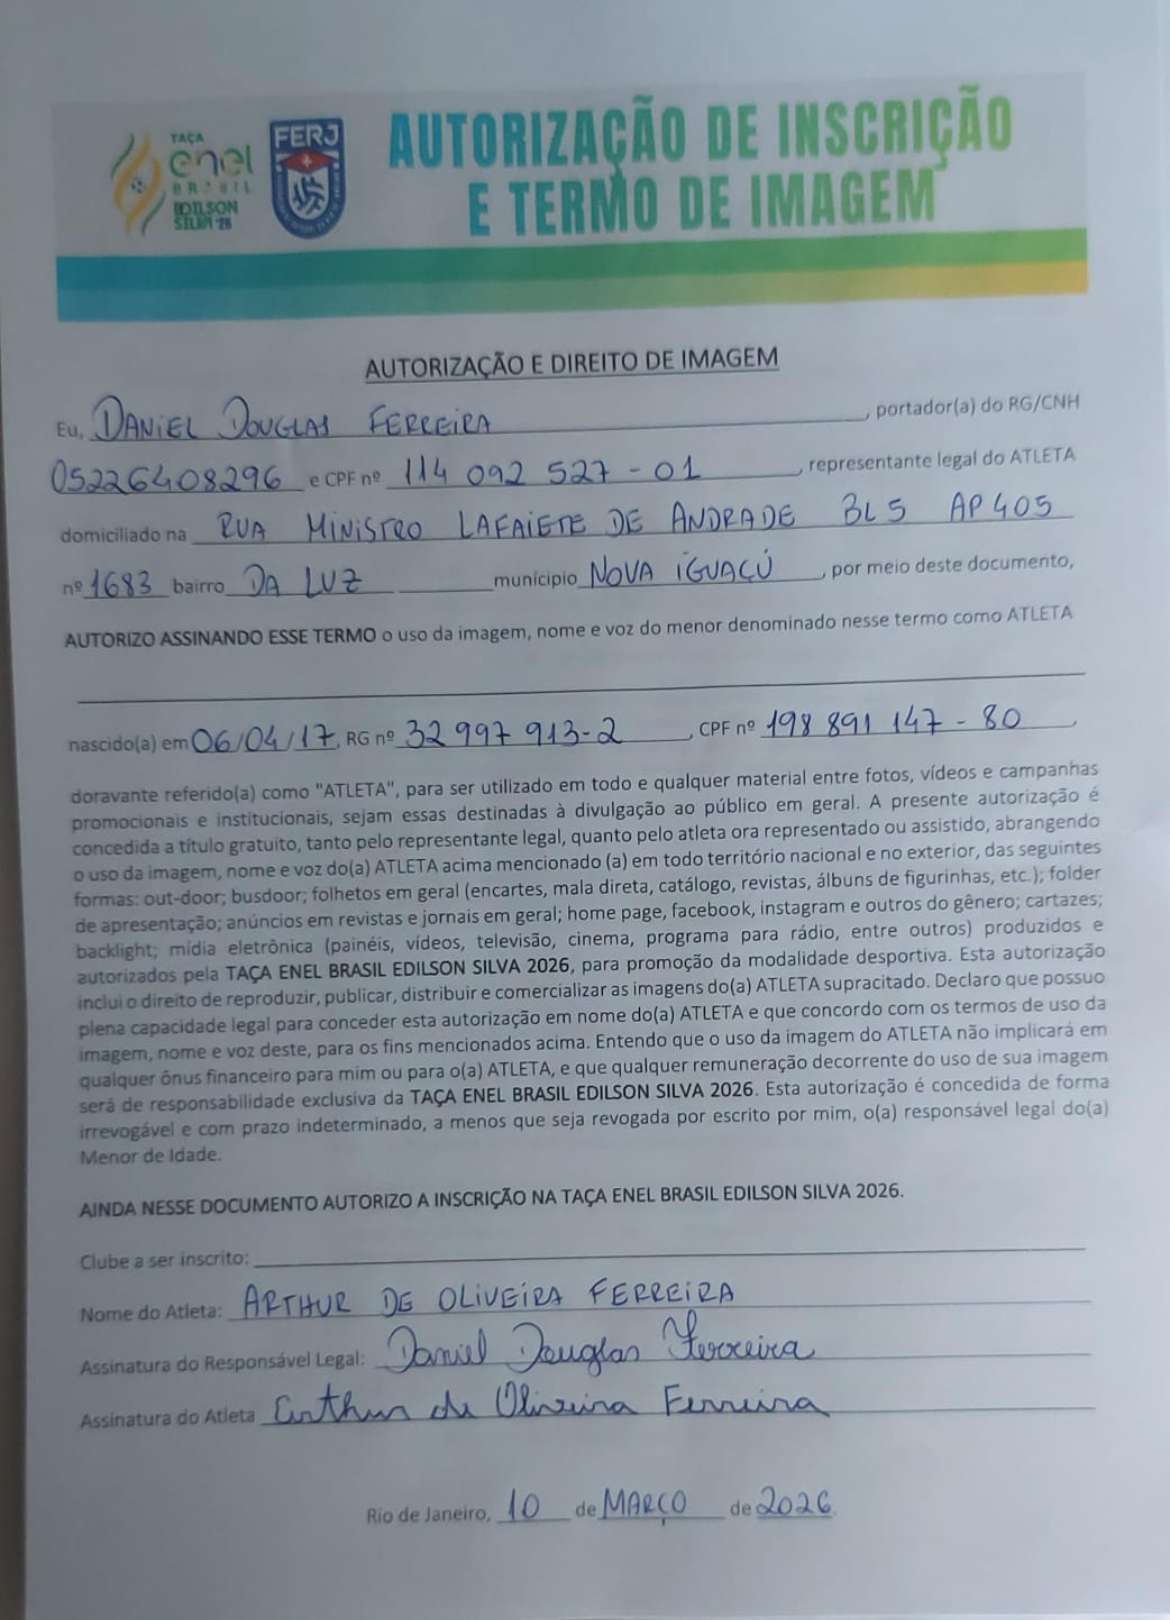 TAÇA
enel
BRASIL
EDILSON
SILVA '26
FERJ
AUTORIZAÇÃO DE INSCRIÇÃO
E TERMO DE IMAGEM
AUTORIZAÇÃO E DIREITO DE IMAGEM
Eu, DANIEL DOUGLAS FERREIRA, portador(a) do RG/CNH
05226408296 e CPF nº 114 092 527 - 01, representante legal do ATLETA
domiciliado na RUA MINISTRO LAFAIETE DE ANDRADE BL 5 AP 405
nº 1683 bairro DA LUZ município NOVA IGUAÇÚ, por meio deste documento,
AUTORIZO ASSINANDO ESSE TERMO o uso da imagem, nome e voz do menor denominado nesse termo como ATLETA
nascido(a) em 06/04/17, RG nº 32 997 913-2, CPF nº 198 891 147 - 80,
doravante referido(a) como "ATLETA", para ser utilizado em todo e qualquer material entre fotos, vídeos e campanhas
promocionais e institucionais, sejam essas destinadas à divulgação ao público em geral. A presente autorização é
concedida a título gratuito, tanto pelo representante legal, quanto pelo atleta ora representado ou assistido, abrangendo
o uso da imagem, nome e voz do(a) ATLETA acima mencionado (a) em todo território nacional e no exterior, das seguintes
formas: out-door; busdoor; folhetos em geral (encartes, mala direta, catálogo, revistas, álbuns de figurinhas, etc.); folder
de apresentação; anúncios em revistas e jornais em geral; home page, facebook, instagram e outros do gênero; cartazes;
backlight; mídia eletrônica (painéis, vídeos, televisão, cinema, programa para rádio, entre outros) produzidos e
autorizados pela TAÇA ENEL BRASIL EDILSON SILVA 2026, para promoção da modalidade desportiva. Esta autorização
inclui o direito de reproduzir, publicar, distribuir e comercializar as imagens do(a) ATLETA supracitado. Declaro que possuo
plena capacidade legal para conceder esta autorização em nome do(a) ATLETA e que concordo com os termos de uso da
imagem, nome e voz deste, para os fins mencionados acima. Entendo que o uso da imagem do ATLETA não implicará em
qualquer ônus financeiro para mim ou para o(a) ATLETA, e que qualquer remuneração decorrente do uso de sua imagem
será de responsabilidade exclusiva da TAÇA ENEL BRASIL EDILSON SILVA 2026. Esta autorização é concedida de forma
irrevogável e com prazo indeterminado, a menos que seja revogada por escrito por mim, o(a) responsável legal do(a)
Menor de Idade.
AINDA NESSE DOCUMENTO AUTORIZO A INSCRIÇÃO NA TAÇA ENEL BRASIL EDILSON SILVA 2026.
Clube a ser inscrito:
Nome do Atleta: ARTHUR DE OLIVEIRA FERREIRA
Assinatura do Responsável Legal: Daniel Douglas Ferreira
Assinatura do Atleta Arthur de Oliveira Ferreira
Rio de Janeiro, 10 de MARÇO de 2026